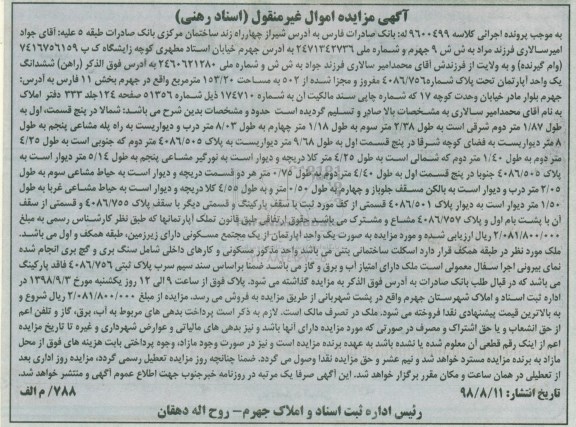 آگهی مزایده اموال غیرمنقول (اسناد رهنی)
به موجب پرونده اجرائی کلاسه ۹۶۰۰۴۹۹ له: بانک صادرات فارس به آدرس شیراز چهارراه زند ساختمان مرکزی بانک صادرات طبقه ۵ علیه: آقای جواد
امیرسالاری فرزند مراد به ش ش ۹ جهرم و شماره ملی ۲۴۷۱۳۴۲۷۳۶ به آدرس جهرم خیابان استاد مطهری کوچه زایشگاه ک پ ۷۴۱۶۷۵۶۱۵۹
(وام گیرنده) و به ولایت از فرزندش آقای محمدامیر سالاری فرزند جواد به ش ش و شماره ملی ۲۴۶۰۶۲۱۲۸۰ به آدرس فوق الذکر (راهن) ششدانگ
یک واحد آپارتمان تحت پلاک شماره ۴۰۸۶/۷۵۶ مفروز و مجزا شده از ۵۰۲ به مساحت ۱۵۳/۲۰ مترمربع واقع در جهرم بخش ۱۱ فارس به آدرس:
جهرم بلوار مادر خیابان وحدت کوچه ۱۷ که شماره چاپی سند مالکیت آن به شماره ۱۷۴۷۱۰ ذیل شماره ۵۱۳۵۶ صفحه ۱۲۴ جلد ۳۳۳ دفتر املاک
به نام آقای محمدامیر سالاری به مشخصات بالا صادر و تسلیم گردیده است حدود و مشخصات بدین شرح می باشد: شمالا در پنج قسمت، اول به
طول ۱/۸۷ متر دوم شرقی است به طول ۲/۳۸ متر سوم به طول ۱/۱۸ متر چهارم به طول ۸/۰۳ متر درب و دیواریست به راه پله مشاعی پنجم به طول
۸ متر دیواریست به فضای کوچه شرقا در پنج قسمت اول به طول ۹/۶۸ متر دیواریست به پلاک ۴۰۸۶/۵۰۵ متر دوم که جنوبی است به طول ۴/۲۵
متر دوم به طول ۱/۴۰ متر دوم که شمالی است به طول ۴/۲۵ متر کلا دریچه و دیوار است به نورگیر مشاعی پنجم به طول ۵/۱۴ متر دیوار است به
پلاک ۴۰۸۶/۵۰۵ جنوبا در پنج قسمت اول به طول ۴/۴۰ متر دوم به طول ۰/۷۵ متر هر دو قسمت دریچه و دیوار است به حیاط مشاعی سوم به طول
۲/۰۵ متر درب و دیوار است به بالکن مسقف جلوباز و چهارم به طول ۰/۵۰ متر و به طول ۴/۵۵ کلا دریچه و دیوار است به حیاط مشاعی غربا به طول
۱/۵۰ متر دیوار به دیوار پلاک ۴۰۸۶/۵۰۱ قسمتی از کف مورد ثبت با سقف پارکینگ و قسمتی دیگر با سقف پلاک ۴۰۸۶/۷۵۵ و قسمتی از سقف
آن با پشت بام اول و پلاک ۴۰۸۶/۷۵۷ مشاع و مشترک می باشد حقوق ارتفاقی طبق قانون تملک آپارتمانها که طبق نظر کارشناس رسمی به مبلغ
۲/۰۸۱/۸۰۰/۰۰۰ ریال ارزیابی شده و مورد مزایده به صورت یک واحد آپارتمان از یک مجتمع مسکونی دارای زیرزمین، طبقه همکف و اول می باشد.
ملک مورد نظر در طبقه همکف قرار دارد اسکلت ساختمانی بتنی می باشد واحد مذکور مسکونی و کارهای داخلی شامل سنگ بری و گچ بری انجام شده
نمای بیرونی اجرا سفال معمولی است ملک دارای امتیاز آب و برق و گاز می باشد ضمنا براساس سند سیم سرب پلاک ثبتی ۴۰۸۶/۷۵۶ فاقد پارکینگ
می باشد که در قبال طلب بانک صادرات به آدرس فوق الذکر به مزایده گذاشته می شود. پلاک فوق از ساعت ۹ الی ۱۲ روز یکشنبه مورخ ۱۳۹۸/۹/۳ در
اداره ثبت اسناد و املاک شهرستان جهرم واقع در پشت شهربانی از طریق مزایده به فروش می رسد. مزایده از مبلغ ۲/۰۸۱/۸۰۰/۰۰۰ ریال شروع و
به بالاترین قیمت پیشنهادی نقدا فروخته می شود. ملک در تصرف مالک است. لازم به ذکر است پرداخت بدهی های مربوط به آب، برق، گاز و تلفن اعم
از حق انشعاب و یا حق اشتراک و مصرف در صورتی که مورد مزایده دارای آنها باشد و نیز بدهی های مالیاتی و عوارض شهرداری و غیره تا تاریخ مزایده
اعم از اینک رقم قطعی آن معلوم شده یا نشده باشد به عهده برنده مزایده است و نیز در صورت وجود مازاد، وجوه پرداختی بابت هزینه های فوق از محل
مازاد به برنده مزایده مسترد خواهد شد و نیم عشر و حق مزایده نقدا وصول می گردد. ضمنا چنانچه روز مزایده تعطیل رسمی گردد، مزایده روز اداری بعد
از تعطیلی در همان ساعت و مکان مقرر برگزار خواهد شد. این آگهی صرفا یک مرتبه در روزنامه خبرجنوب جهت اطلاع عموم آگهی و منتشر خواهد شد.
تاریخ انتشار: ۹۸/۸/۱۱
۷۸۸/ م الف
رئیس اداره ثبت اسناد و املاک جهرم – روح اله دهقان